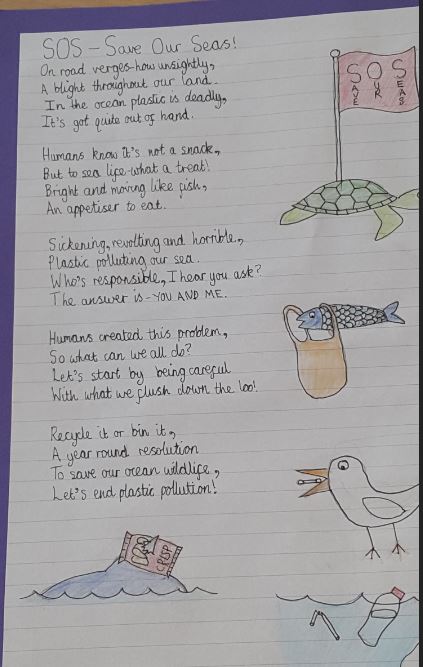 SOS - Save Our Seas!
On road verges-how unsightly,
A blight throughout our land.
In the ocean plastic is deadly,
It's got quite out of hand.
Humans know it's not a snack,
But to sea life-what a treat!
Bright and moving like fish,
An appetiser to eat.
Sickening, revolting and horrible,
Plastic polluting our sea.
Who's responsible, I hear you ask?
The answer is-YOU AND ME.
Humans created this problem,
So what can we all do?
Let's start by being careful
With what we flush down the loo!
Recycle it or bin it,
A year round resolution
To save our ocean wildlife,
Let's end plastic pollution!
SOS
SAVE
OUR
SEAS
CRISP